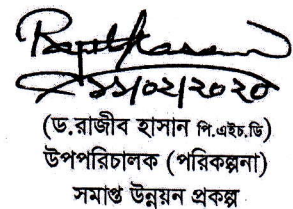 ১১/০২/২০২০
(ড.রাজীব হাসান পি.এইচ.ডি)
উপপরিচালক (পরিকল্পনা)
সমাপ্ত উন্নয়ন প্রকল্প